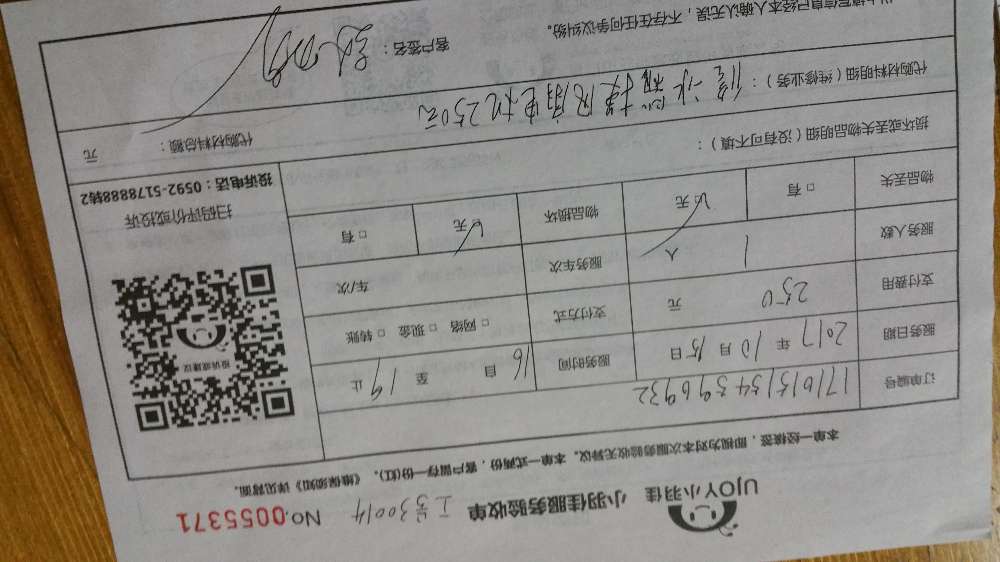 UJOY小羽佳 小羽佳服务验收单 工号30014 No.0055371
本单一经核签，即视为对本次服务验收无异议。本单一式两份，客户留存一份(红)。《维保须知》详见背面。
订单编号 171015154396932
服务日期 2017年10月15日 服务时间 16自 至19止
支付费用 250元 支付方式 □网络 □现金 □转账
服务人数 1人 服务车次 车/次
物品丢失 □有 ☑无 物品损坏 ☑无 □有
损坏或丢失物品明细（没有可不填）：
代购材料明细（维修业务）：修冰箱 换风扇电机250元
代购材料总额： 元
以上填写信息已经本人确认无误，不存在任何争议纠纷。
客户签名：
投诉或建议
扫码评价或投诉
投诉电话：0592-5178888转2